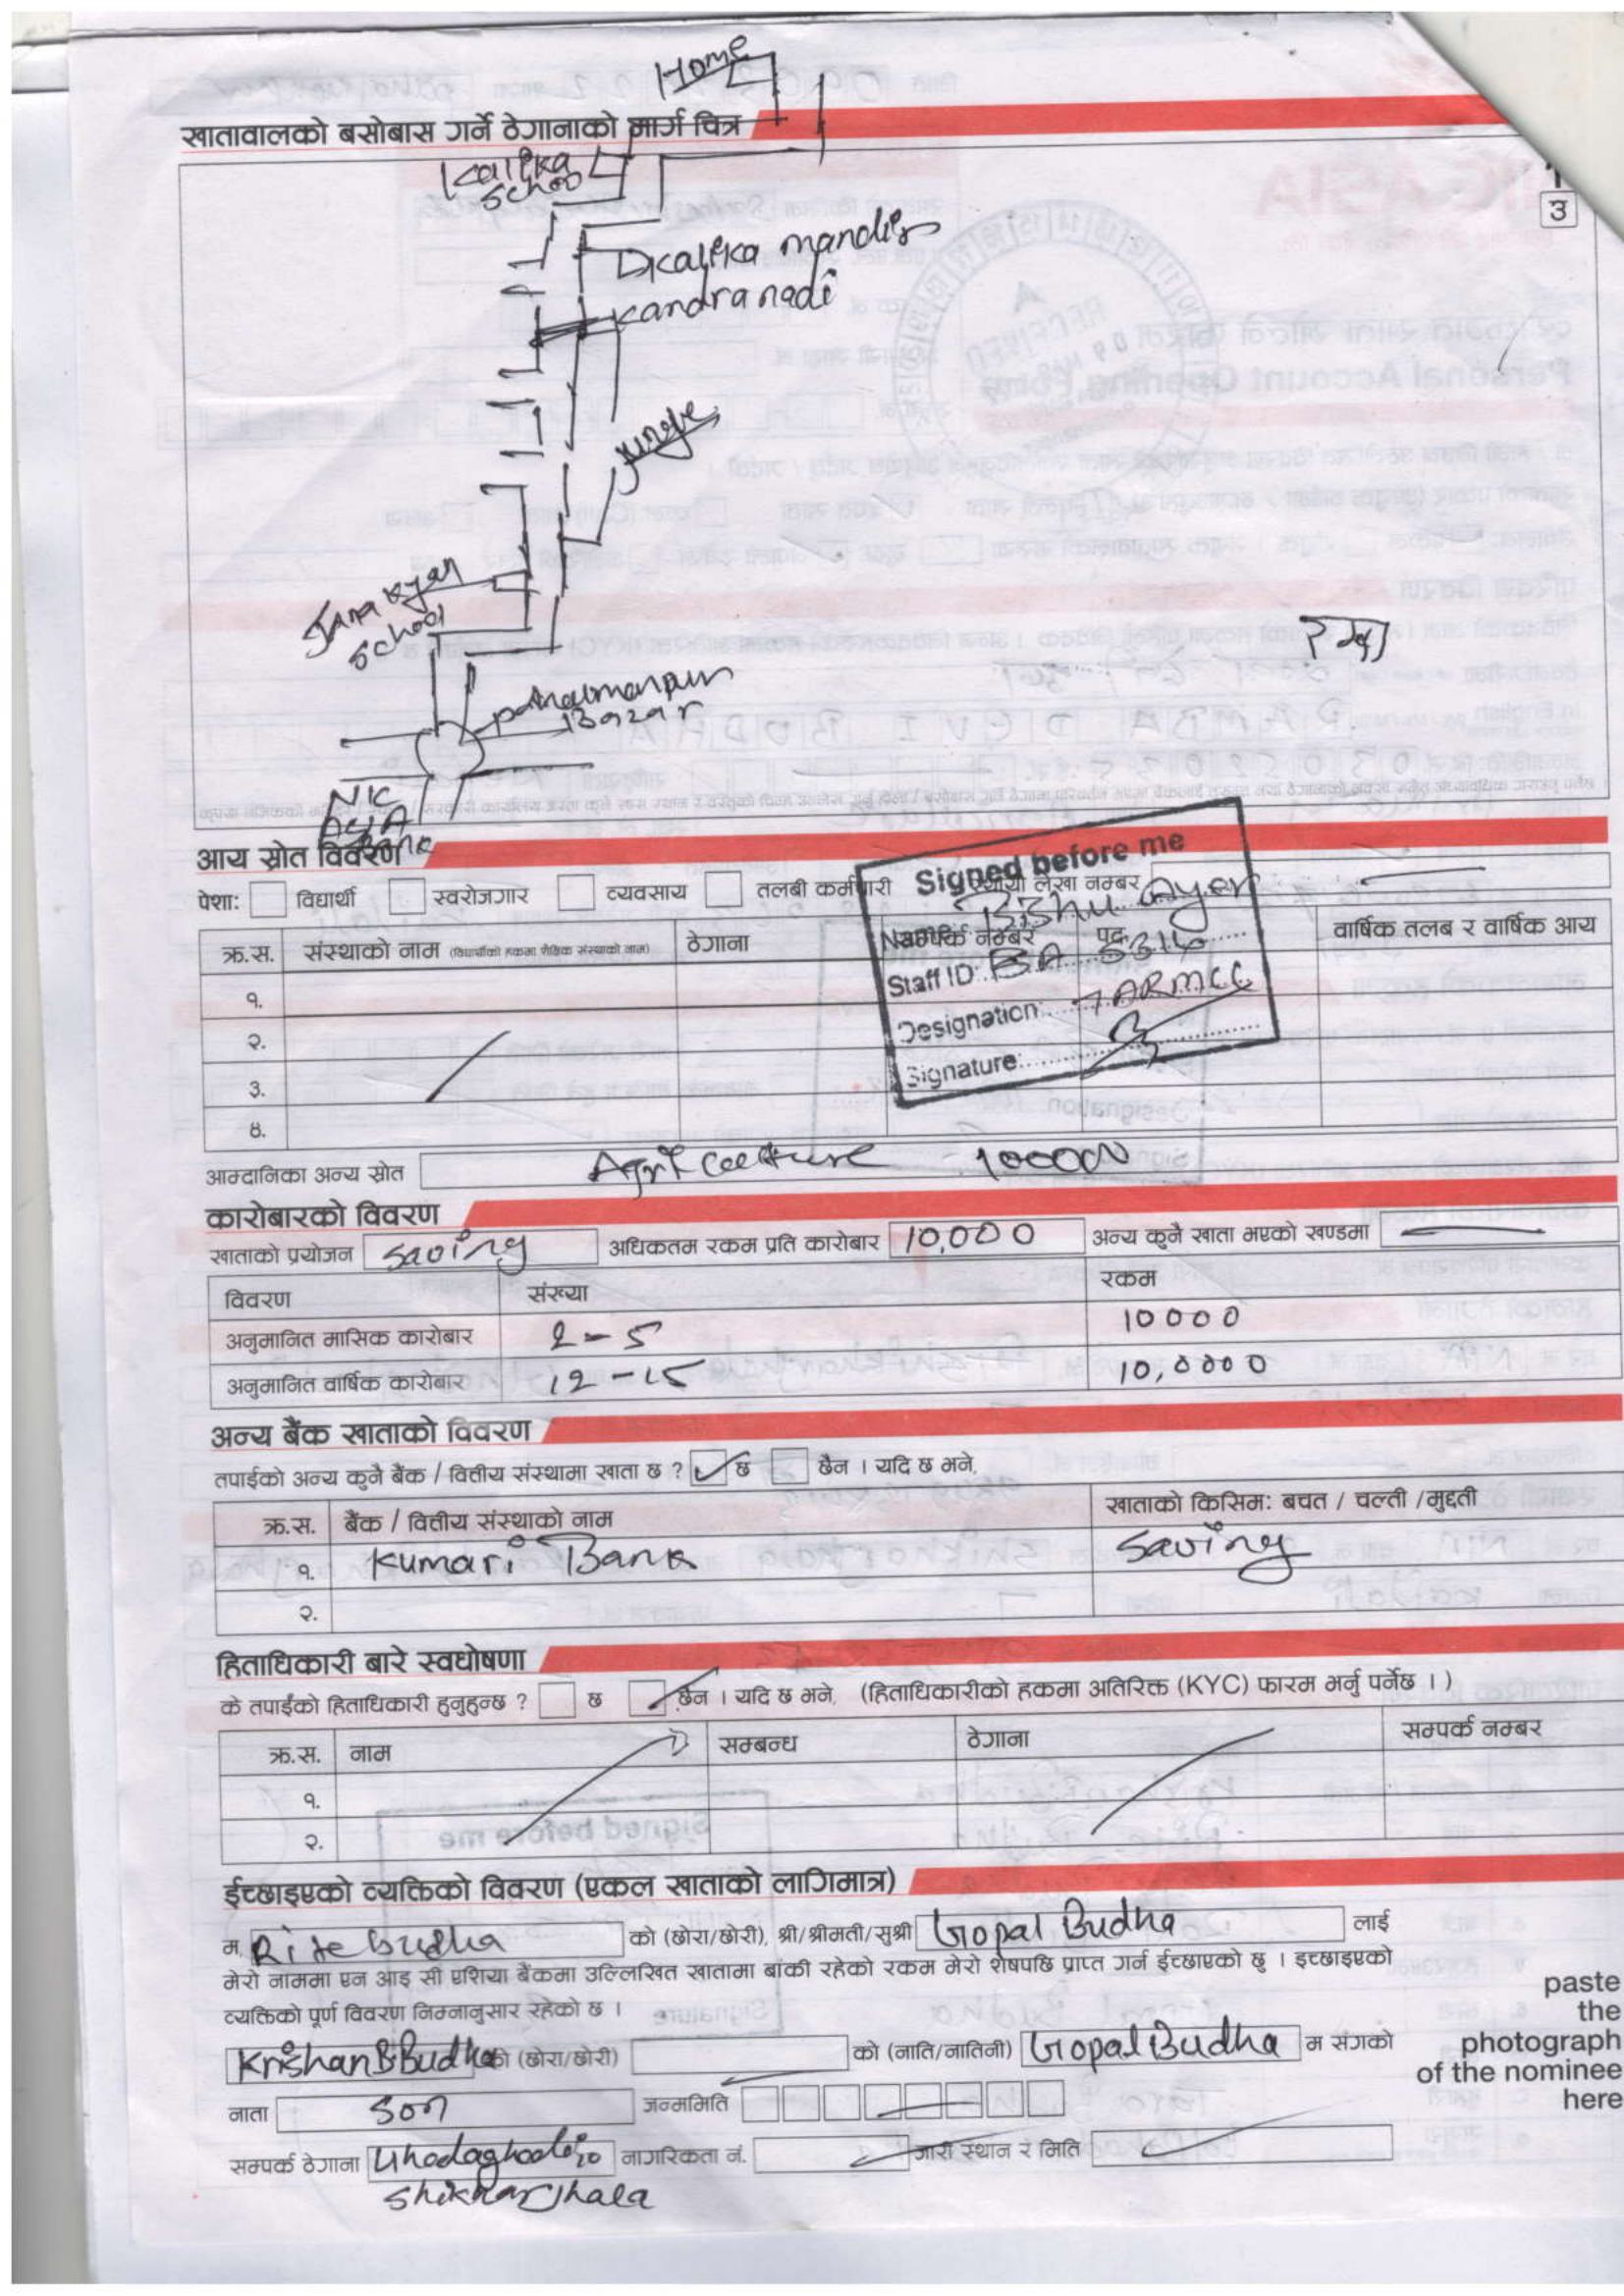 Home
खातावालको बसोबास गर्ने ठेगानाको मार्ग चित्र
Kalika
School
उ
Kalika mandir
kandra nadi
jungle
Janakyan
School
pahalmanpur
Bazar
NIC
Asia
Bank
आय स्रोत विवरण
Signed before me
पेशा: विद्यार्थी स्वरोजगार व्यवसाय तलबी कर्मचारी स्थायी लेखा नम्बर
Name: Bishu Ayer
क्र.स. संस्थाको नाम (विद्यार्थीको हकमा शैक्षिक संस्थाको नाम) ठेगाना सम्पर्क नम्बर पद वार्षिक तलब र वार्षिक आय
Staff ID:
१.
Designation:
२.
Signature:
३.
४.
आम्दानिका अन्य स्रोत Agriculture - 100000
कारोबारको विवरण
खाताको प्रयोजन Saving अधिकतम रकम प्रति कारोबार 10,000 अन्य कुनै खाता भएको खण्डमा
विवरण संख्या रकम
अनुमानित मासिक कारोबार 2-5 10000
अनुमानित वार्षिक कारोबार 12-15 10,0000
अन्य बैंक खाताको विवरण
तपाईको अन्य कुनै बैंक / वित्तीय संस्थामा खाता छ ? छ छैन । यदि छ भने,
क्र.स. बैंक / वित्तीय संस्थाको नाम खाताको किसिम: बचत / चल्ती /मुद्दती
१. Kumari Bank Saving
२.
हिताधिकारी बारे स्वघोषणा
के तपाईको हिताधिकारी हुनुहुन्छ ? छ छैन । यदि छ भने, (हिताधिकारीको हकमा अतिरिक्त (KYC) फारम भर्नु पर्नेछ । )
क्र.स. नाम सम्बन्ध ठेगाना सम्पर्क नम्बर
१.
२.
ईच्छाइएको व्यक्तिको विवरण (एकल खाताको लागिमात्र)
म, Rite budha को (छोरा/छोरी), श्री/श्रीमती/सुश्री Gopal Budha लाई
मेरो नाममा एन आइ सी एशिया बैंकमा उल्लिखित खातामा बांकी रहेको रकम मेरो शेषपछि प्राप्त गर्न ईच्छाएको छु । इच्छाइएको
व्यक्तिको पूर्ण विवरण निम्नानुसार रहेको छ ।
Krishan B Budha को (छोरा/छोरी) को (नाति/नातिनी) Gopal Budha म संगको
नाता Son जन्ममिति
सम्पर्क ठेगाना नागरिकता नं. जारी स्थान र मिति
paste
the
photograph
of the nominee
here